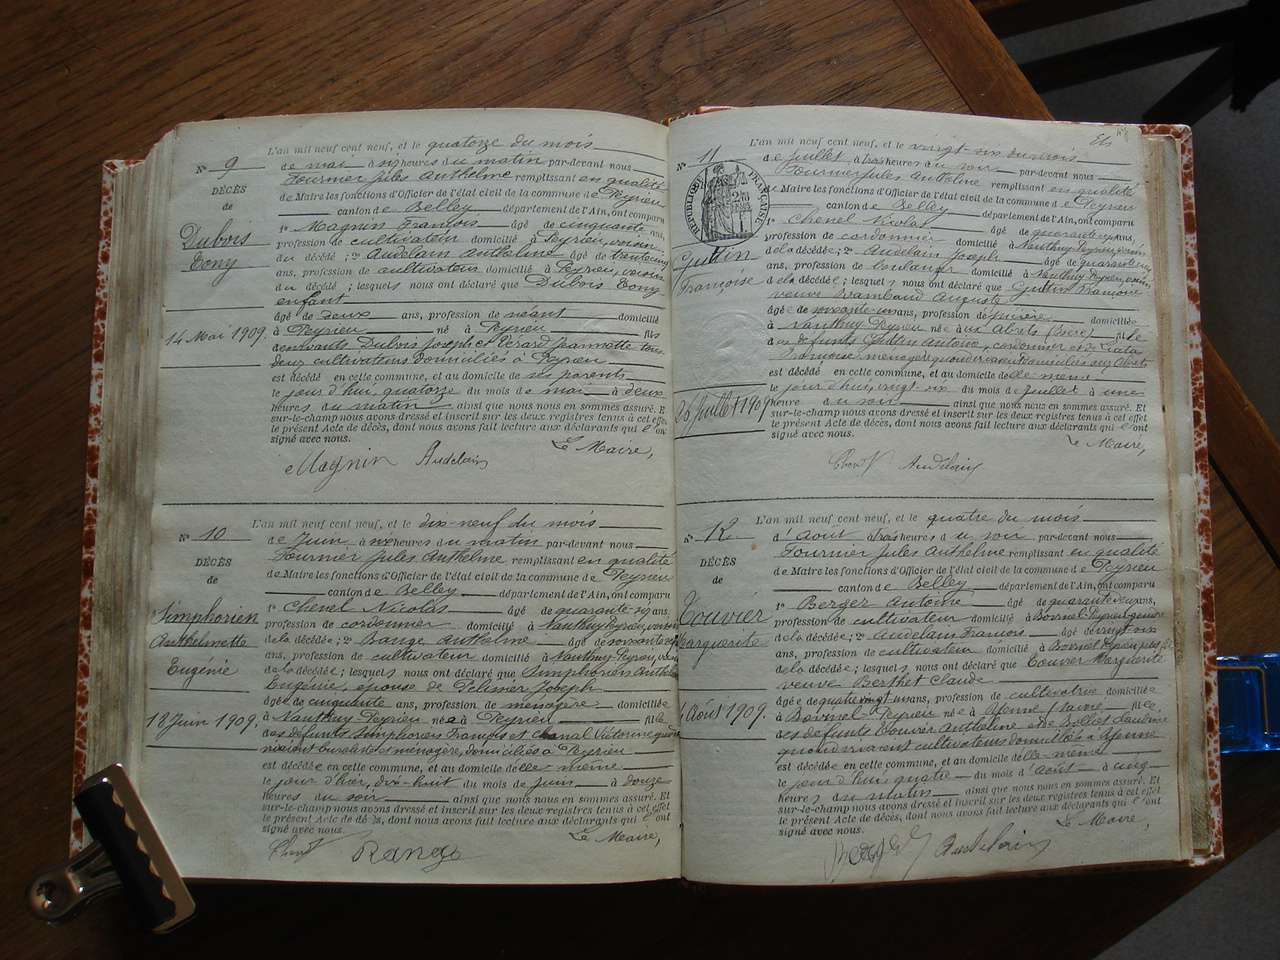 N° 9
DÉCÈS
de
Dubois
Tony
14 Mai 1909.
L'an mil neuf cent neuf, et le quatorze du mois
de mai à six heures du matin par-devant nous
Fournier Jules Anthelme remplissant en qualité
de Maire les fonctions d'Officier de l'état civil de la commune de Peyrieu
canton de Belley département de l'Ain, ont comparu
1° Magnin François âgé de cinquante ans,
profession de cultivateur domicilié à Peyrieu, voisin
du décédé ; 2° Audelain Anthelme âgé de
ans, profession de cultivateur domicilié à Peyrieu, voisin
du décédé ; lesquels nous ont déclaré que Dubois Tony
enfant
âgé de deux ans, profession de néant domicilié
à Peyrieu né à Peyrieu fils
de vivants Dubois Joseph et Jeannette tous
deux cultivateurs domiciliés à Peyrieu
est décédé en cette commune, et au domicile de ses parents
le jour d'hui, quatorze du mois de mai à deux
heures du matin ainsi que nous nous en sommes assuré. Et
sur-le-champ nous avons dressé et inscrit sur les deux registres tenus à cet effet
le présent Acte de décès, dont nous avons fait lecture aux déclarants qui l'ont
signé avec nous.
Le Maire,
Magnin Audelain
N° 10
DÉCÈS
de
Simphorien
Anthelmette
Eugénie
18 Juin 1909.
L'an mil neuf cent neuf, et le dix-neuf du mois
de Juin à heures du matin par-devant nous
Fournier Jules Anthelme remplissant en qualité
de Maire les fonctions d'Officier de l'état civil de la commune de Peyrieu
canton de Belley département de l'Ain, ont comparu
1° Chenel Nicolas âgé de quarante-six ans,
profession de cordonnier domicilié à Nanthuy Peyrieu, voisin
de la décédée ; 2° Range Anthelme âgé de soixante
ans, profession de cultivateur domicilié à Nanthuy Peyrieu, voisin
de la décédée ; lesquels nous ont déclaré que Simphorien Anthelmette
Eugénie, épouse de Pelisser Joseph
âgée de cinquante ans, profession de ménagère domiciliée
à Nanthuy Peyrieu née à Peyrieu fille
des défunts Simphorien François et Chanal Victorine quand
vivaient buraliste et ménagère, domiciliés à Peyrieu
est décédée en cette commune, et au domicile d'elle-même
le jour d'hier, dix-huit du mois de Juin à douze
heures du soir ainsi que nous nous en sommes assuré. Et
sur-le-champ nous avons dressé et inscrit sur les deux registres tenus à cet effet
le présent Acte de décès, dont nous avons fait lecture aux déclarants qui l'ont
signé avec nous.
Le Maire,
Range
N° 11
RÉPUBLIQUE FRANÇAISE
Guttin
Françoise
26 Juillet 1909
L'an mil neuf cent neuf, et le vingt-six du mois
de Juillet à trois heures du soir par-devant nous
Fournier Jules Anthelme remplissant en qualité
de Maire les fonctions d'Officier de l'état civil de la commune de Peyrieu
canton de Belley département de l'Ain, ont comparu
1° Chenel Nicolas âgé de quarante-six ans,
profession de cordonnier domicilié à Nanthuy Peyrieu, voisin
de la décédée ; 2° Audelain Joseph âgé de quarante
ans, profession de boulanger domicilié à Nanthuy Peyrieu, voisin
de la décédée ; lesquels nous ont déclaré que Guttin Françoise
veuve Rambaud Auguste
âgée de soixante ans, profession de domiciliée
à Nanthuy Peyrieu née à aux Abrets (Isère) fille
des défunts Guttin Antoine, cordonnier et de
Françoise, ménagère quand vivaient domiciliés aux Abrets
est décédée en cette commune, et au domicile d'elle même
le jour d'hui, vingt six du mois de Juillet à une
heure du soir ainsi que nous nous en sommes assuré. Et
sur-le-champ nous avons dressé et inscrit sur les deux registres tenus à cet effet
le présent Acte de décès, dont nous avons fait lecture aux déclarants qui l'ont
signé avec nous.
Le Maire,
Audelain
N° 12
DÉCÈS
de
Touvier
Marguerite
4 Août 1909.
L'an mil neuf cent neuf, et le quatre du mois
d'Août à trois heures du soir par-devant nous
Fournier Jules Anthelme remplissant en qualité
de Maire les fonctions d'Officier de l'état civil de la commune de Peyrieu
canton de Belley département de l'Ain, ont comparu
1° Berger Antoine âgé de quarante deux ans,
profession de cultivateur domicilié à
de la décédée ; 2° Audelain François âgé de vingt-six
ans, profession de cultivateur domicilié à
de la décédée ; lesquels nous ont déclaré que Touvier Marguerite
veuve Berthet Claude
âgée de quatre vingt un ans, profession de cultivatrice domiciliée
à Peyrieu née à fille
des défunts Touvier Anthelme et de Bollet Claudine
quand vivaient cultivateurs domiciliés à
est décédée en cette commune, et au domicile d'elle-même
le jour d'hui quatre du mois d'août à cinq
heures du matin ainsi que nous nous en sommes assuré. Et
sur-le-champ nous avons dressé et inscrit sur les deux registres tenus à cet effet
le présent Acte de décès, dont nous avons fait lecture aux déclarants qui l'ont
signé avec nous.
Le Maire,
Berger Audelain